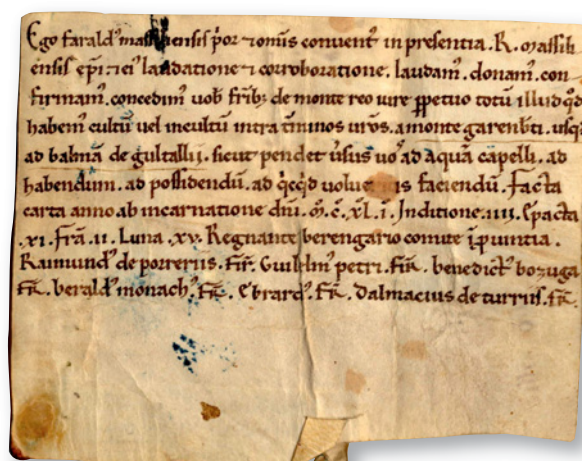 Ego farald' massiliensis p̄or ⁊ omīs convent' in presentia. R. massili
ensis ep̄i. ⁊ ei' laudatione ⁊ corroboratione. laudam'. donam'. con
firmam'. concedim' vob̄ fr̄ib; de monte reo iure ꝑpetuo totū illud qd̄
habem' cultū vel incultū intra t̄minos ur̄os. a monte garenb̄ti. usq;
ad balmā de gultallii. sicut pendet ūsus uo' ad aquā capelli. ad
habendum. ad possidendū. ad q̄cq̄d faciendū. facta
carta anno ab incarnatione dn̄i. M. C. XL. I. Inditione. IIII. Epacta
.XI. Fr̄a. II. Luna. XV. Regnante berengario comite ī puintia.
Raimund' de poẓrerus. fir̄. Guillm' petri. fir̄. benedict' bozuga
fir̄. berald' monach'. fir̄. Ebrard'. fir̄. Dalmacius de turrus. fir̄.